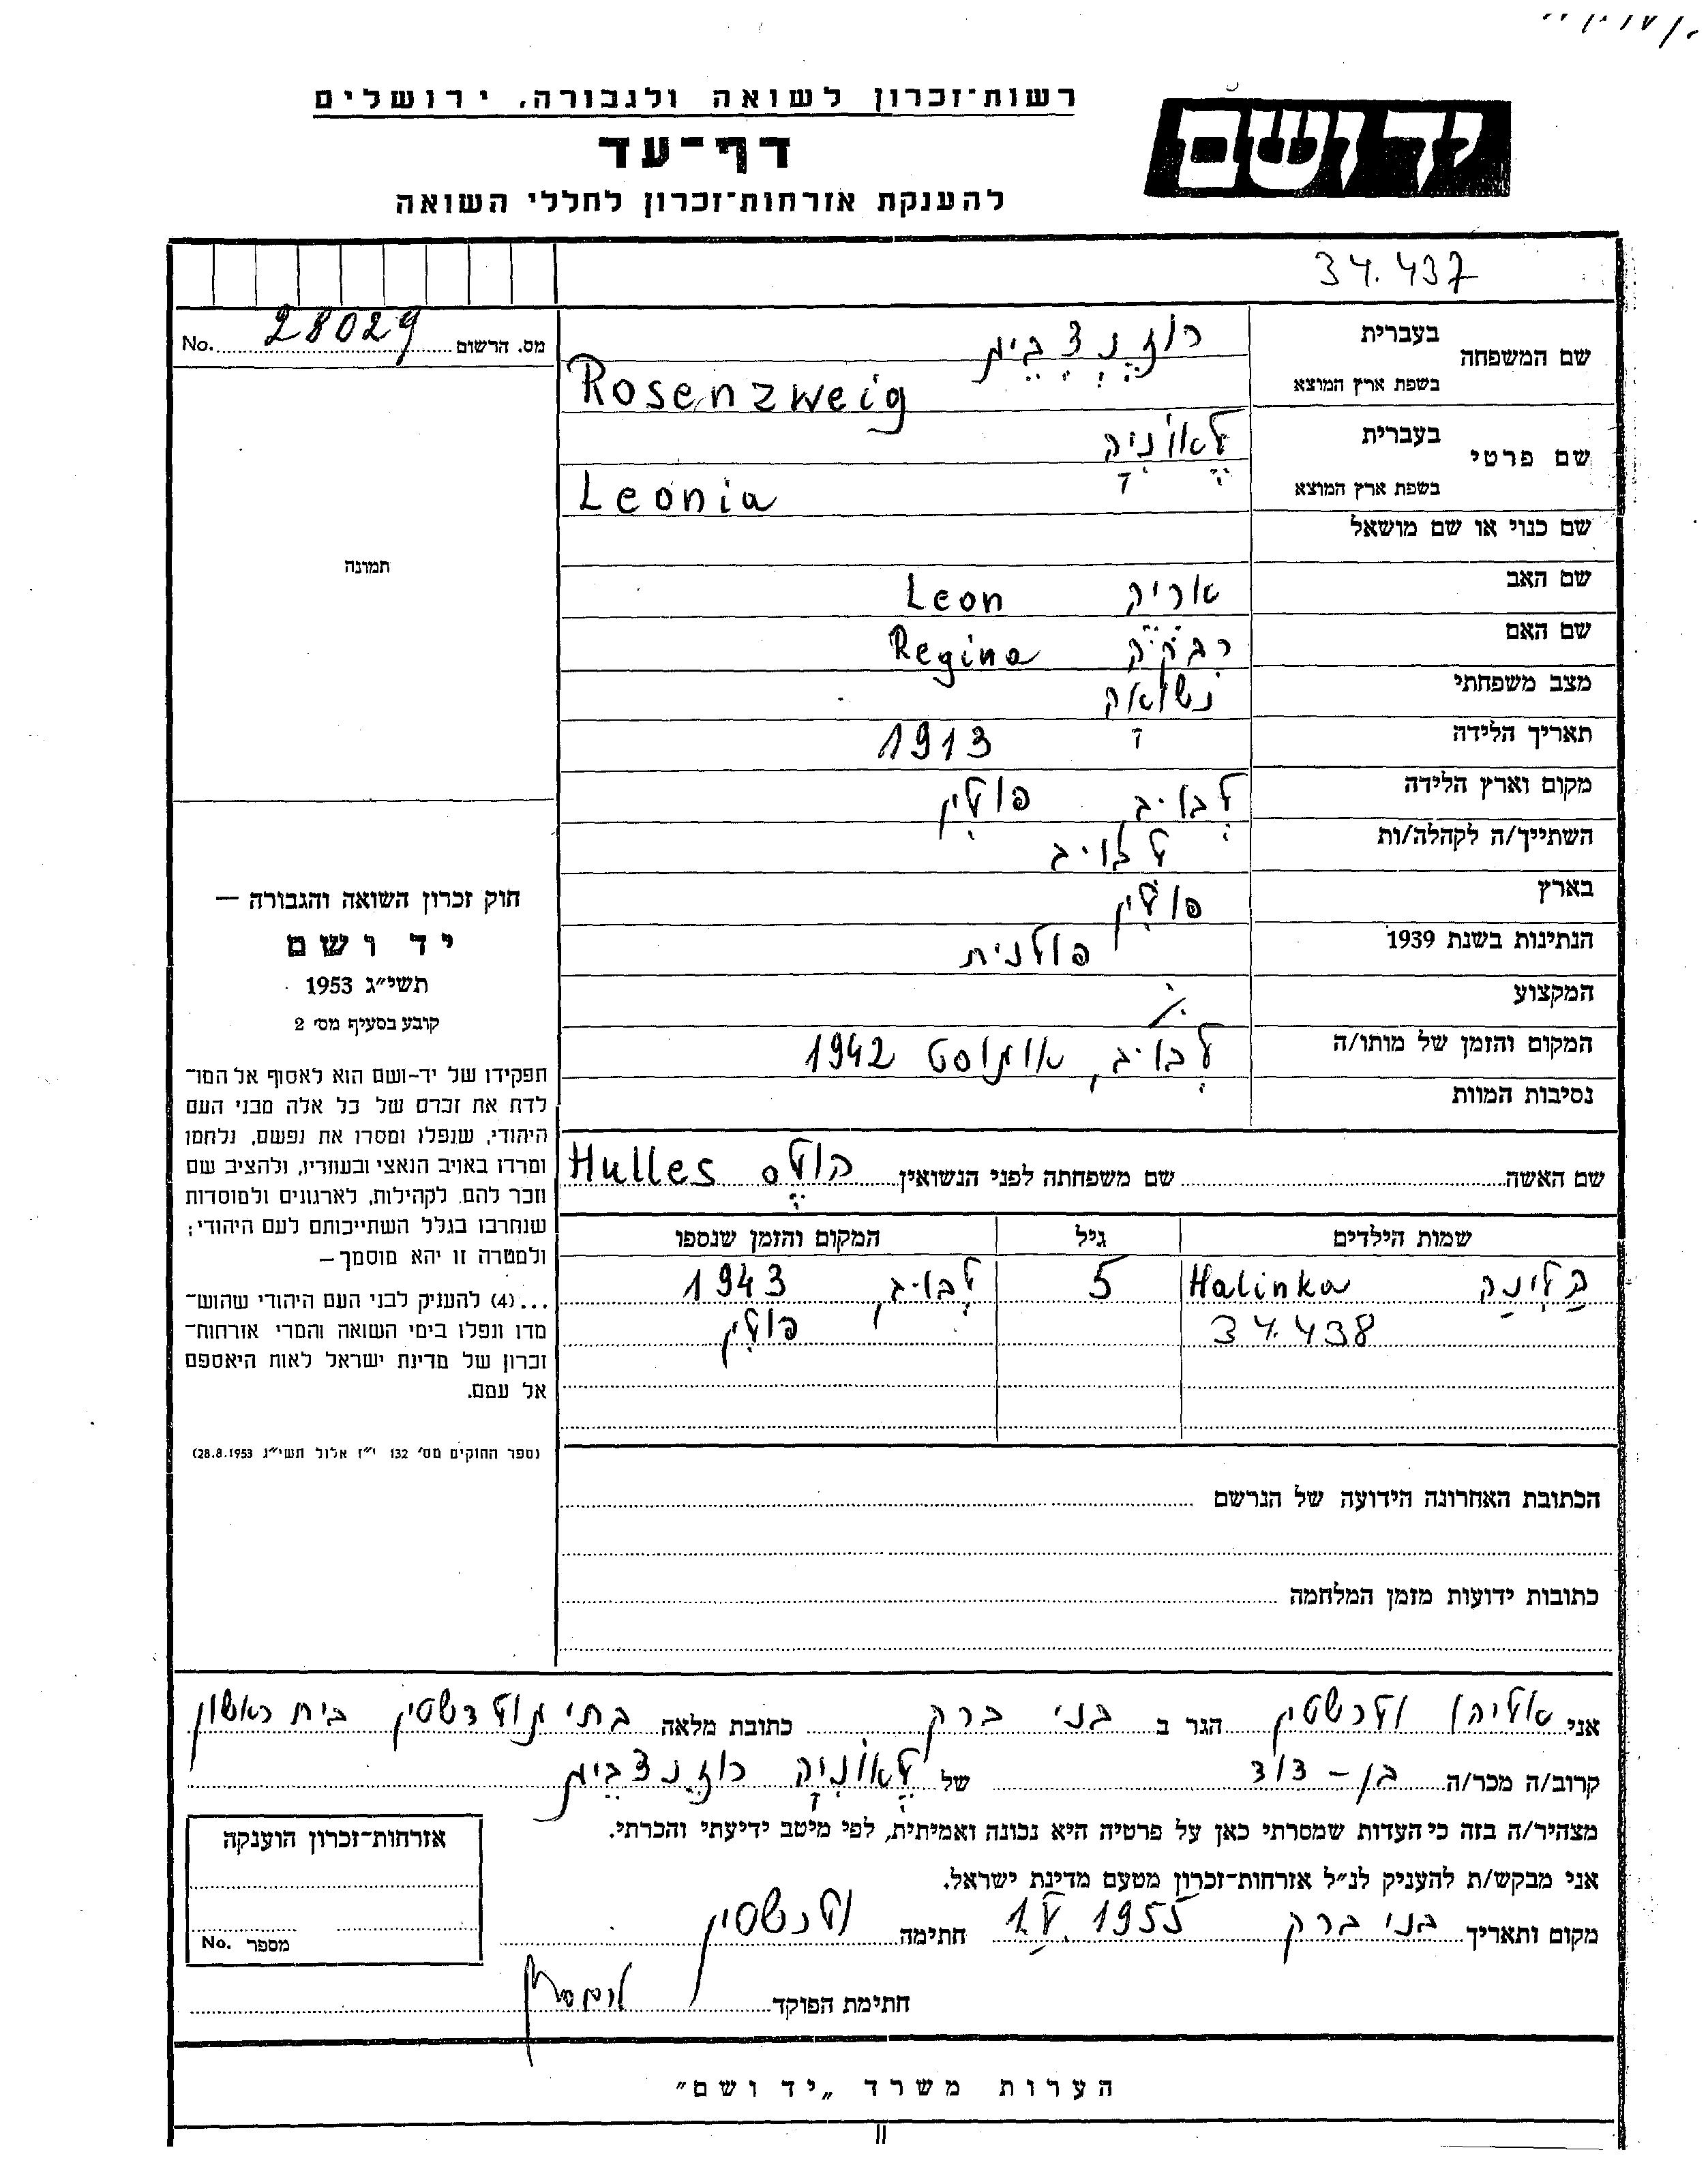 רשות־זכרון לשואה ולגבורה, ירושלים
יד ושם
דף־עד
להענקת אזרחות־זכרון לחללי השואה
34.437
מס. הרשום 28029 No.
שם המשפחה
בעברית רוזנצביג
בשפת ארץ המוצא Rosenzweig
שם פרטי
בעברית לאוניה
בשפת ארץ המוצא Leonia
שם כנוי או שם מושאל
שם האב אריה Leon
שם האם רבקה Regina
מצב משפחתי נשואה
תאריך הלידה 1913
מקום וארץ הלידה לבוב פולין
השתייך/ה לקהלה/ות לבוב
בארץ פולין
הנתינות בשנת 1939 פולנית
המקצוע
המקום והזמן של מותו/ה לבוב, אוגוסט 1942
נסיבות המוות
שם האשה שם משפחתה לפני הנשואין הולס Hulles
שמות הילדים גיל המקום והזמן שנספו
הלינה Halinka 5 לבוב, 1943
34.438 פולין
הכתובת האחרונה הידועה של הנרשם
כתובות ידועות מזמן המלחמה
תמונה
חוק זכרון השואה והגבורה —
יד ושם
תשי״ג 1953
קובע בסעיף מס׳ 2
תפקידו של יד־ושם הוא לאסוף אל המו־
לדת את זכרם של כל אלה מבני העם
היהודי, שנפלו ומסרו את נפשם, נלחמו
ומרדו באויב הנאצי ובעוזריו, ולהציב שם
וזכר להם, לקהילות, לארגונים ולמוסדות
שנחרבו בגלל השתייכותם לעם היהודי;
ולמטרה זו יהא מוסמך —
...(4) להענק לבני העם היהודי שהוש־
מדו ונפלו בימי השואה והמרי אזרחות־
זכרון של מדינת ישראל לאות היאספם
אל עמם.
(ספר החוקים מס׳ 132 י״ז אלול תשי״ג 28.8.1953)
אני אליהו הגר ב בני ברק כתובת מלאה בתי בית ראשון
קרוב/ה מכר/ה בן-דוד של לאוניה רוזנצביג
מצהיר/ה בזה כי העדות שמסרתי כאן על פרטיה היא נכונה ואמיתית, לפי מיטב ידיעתי והכרתי.
אני מבקש/ת להעניק לנ״ל אזרחות־זכרון מטעם מדינת ישראל.
מקום ותאריך בני ברק 1.V.1955 חתימה
חתימת הפוקד
אזרחות־זכרון הוענקה
מספר No.
הערות משרד „יד ושם״
II